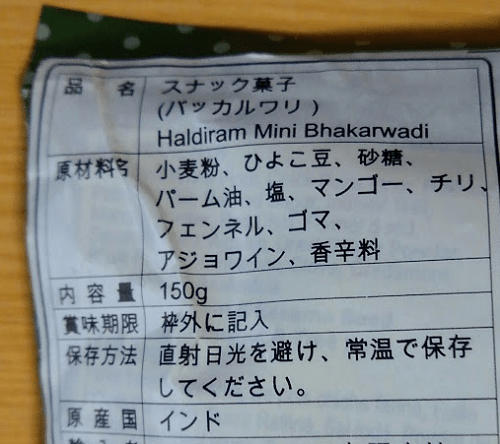 品名 スナック菓子
(バッカルワリ)
Haldiram Mini Bhakarwadi
原材料名 小麦粉、ひよこ豆、砂糖、
パーム油、塩、マンゴー、チリ、
フェンネル、ゴマ、
アジョワイン、香辛料
内容量 150g
賞味期限 枠外に記入
保存方法 直射日光を避け、常温で保存
してください。
原産国 インド